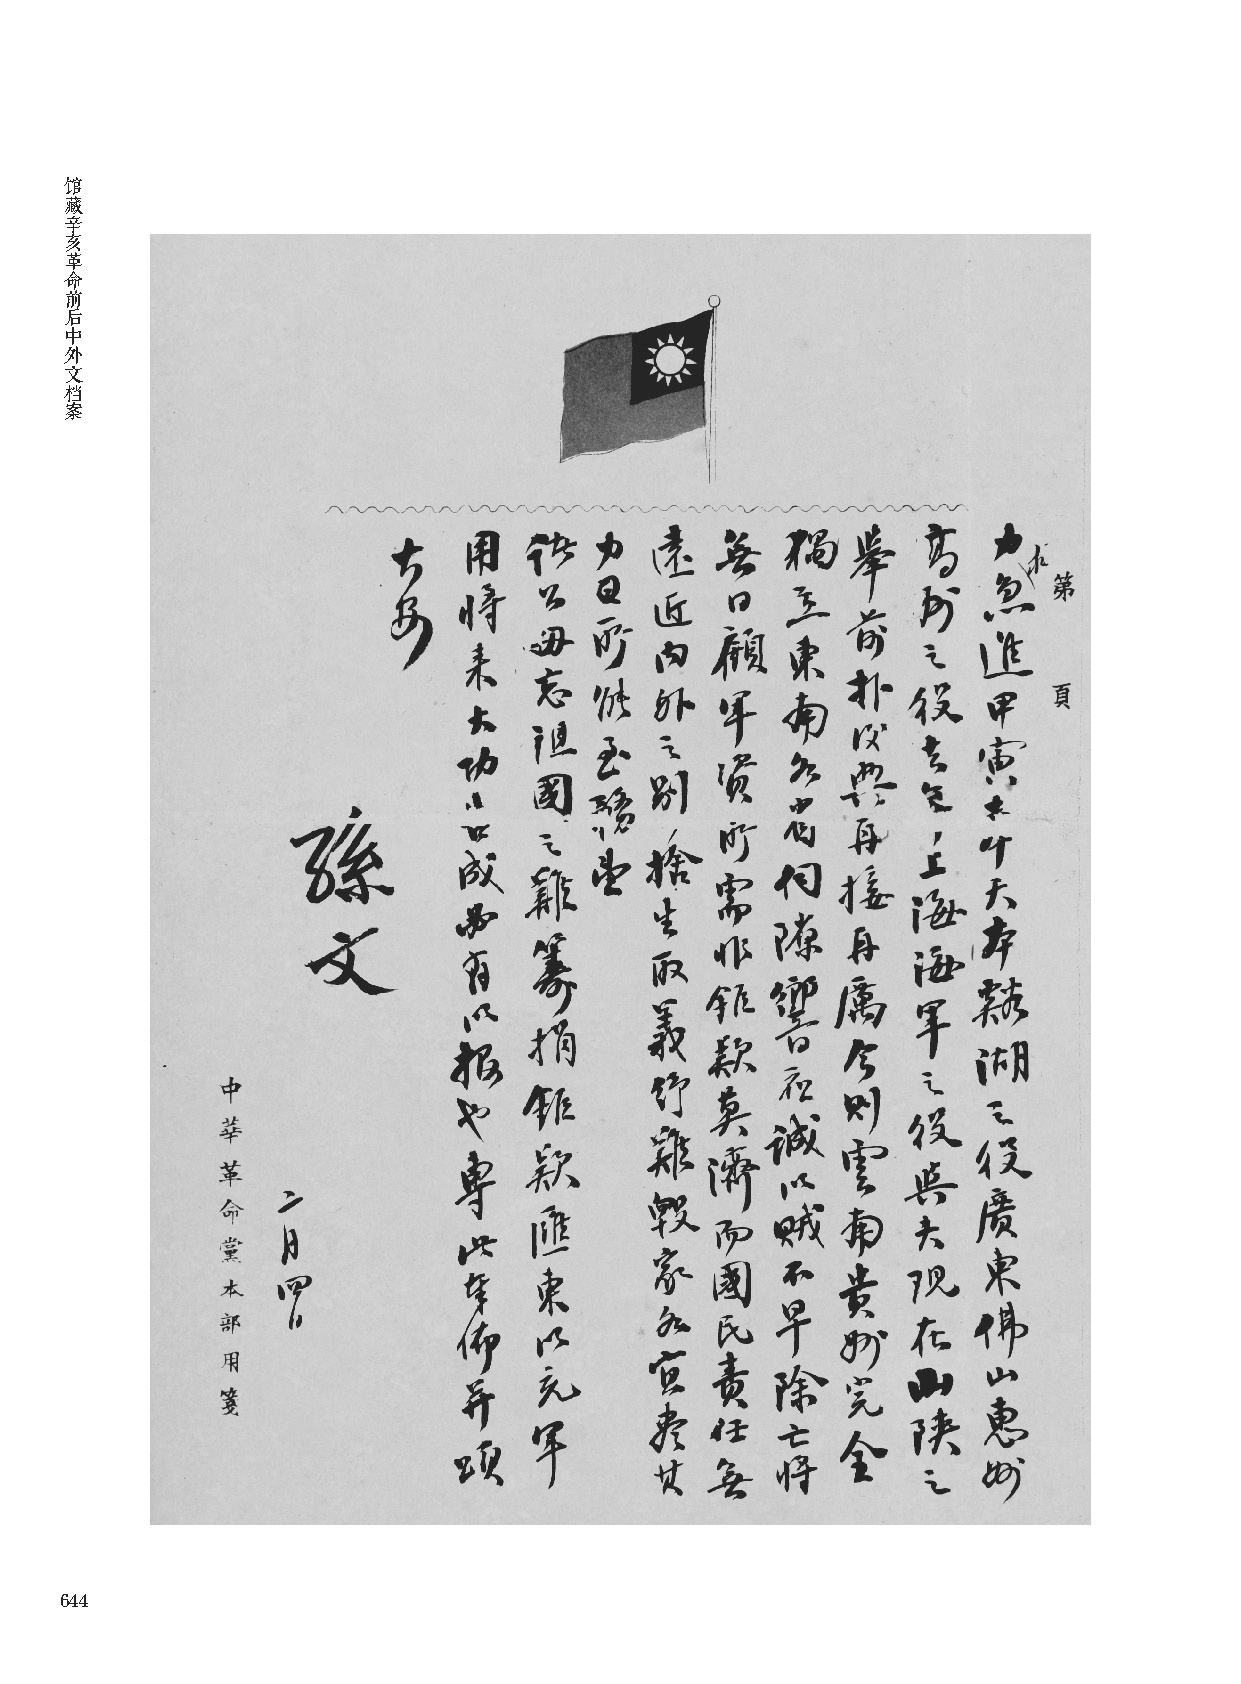 馆藏辛亥革命前后中外文档案
第 頁
力求急進甲寅大叶天本谿湖之役廣東佛山惠州
高州之役去年上海海軍之役與夫現在山陝之
舉前仆後興再接再厲今則雲南貴州完全
獨立東南各省伺隙響應誠以賊不早除亡將
無日顧軍資所需非鉅款莫濟而國民責任無
遠近內外之別捨生取義紓難毀家各宜盡其
力日所能至禱盼
公毋忘祖國之難籌捐鉅款匯東以充軍
用將來大功告成必有以報也專此奉佈并頌
大安
孫文
二月四日
中華革命黨本部用箋
644